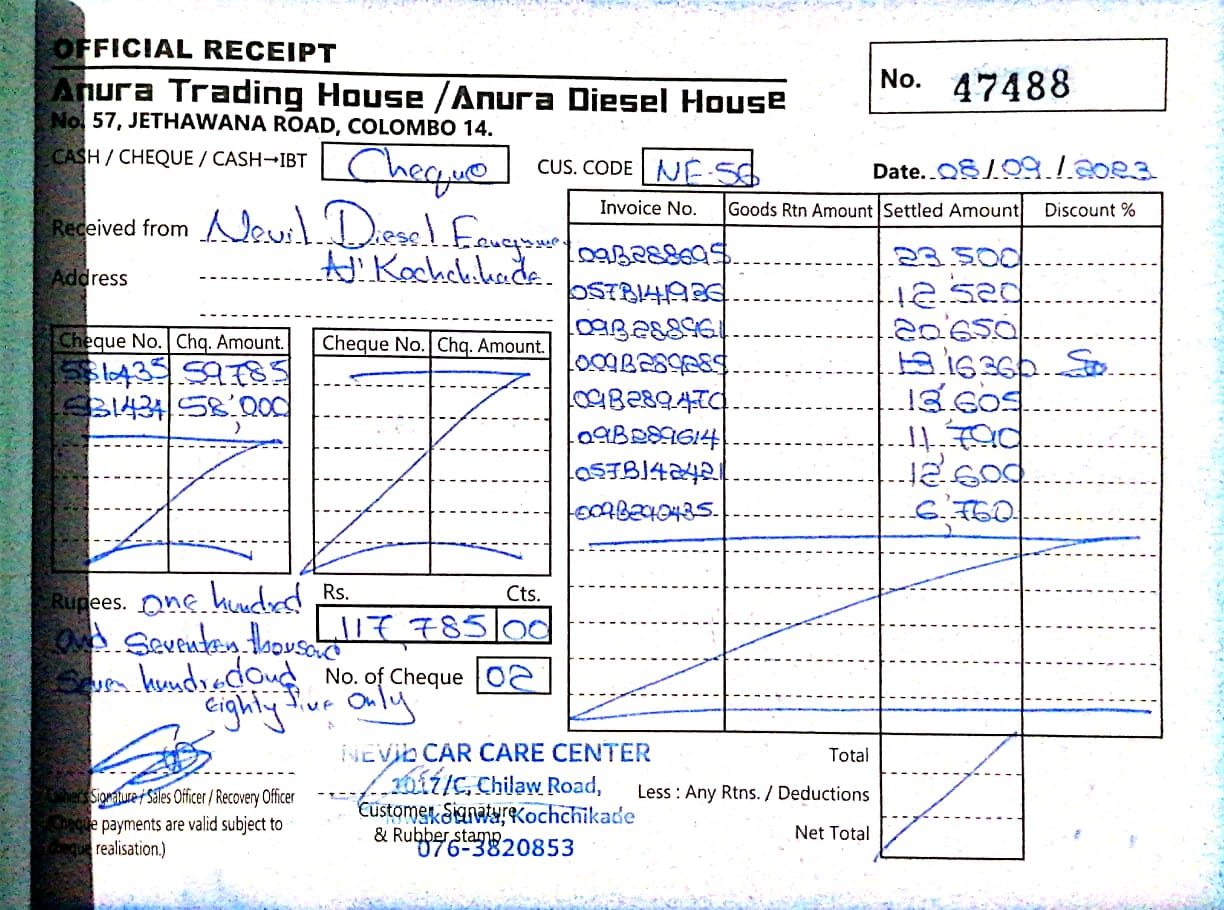 OFFICIAL RECEIPT
No. 47488
Anura Trading House /Anura Diesel House
No. 57, JETHAWANA ROAD, COLOMBO 14.
CASH / CHEQUE / CASH→IBT Cheque CUS. CODE NE-56 Date. 08/09/2023
Received from Nevil Diesel
Address Kochchikade
Invoice No. Goods Rtn Amount Settled Amount Discount %
09B288695 23'500
057B141936 12'520
09B288961 20'650
009B289289 16360
09B289470 13'605
09B289614 11,790
057B142421 12'600
009B290435 6,760
Cheque No. Chq. Amount. Cheque No. Chq. Amount.
581435 59785
531434 58'000
Rupees. One hundred
and Seventen thousand
Seven hundred and
Eighty five Only
Rs. Cts.
117 785 00
No. of Cheque 02
Signature / Sales Officer / Recovery Officer
(Cheque payments are valid subject to
cheque realisation.)
NEVIL CAR CARE CENTER
1017/C, Chilaw Road,
Kochchikade
076-3820853
Customer Signature
& Rubber stamp
Total
Less : Any Rtns. / Deductions
Net Total